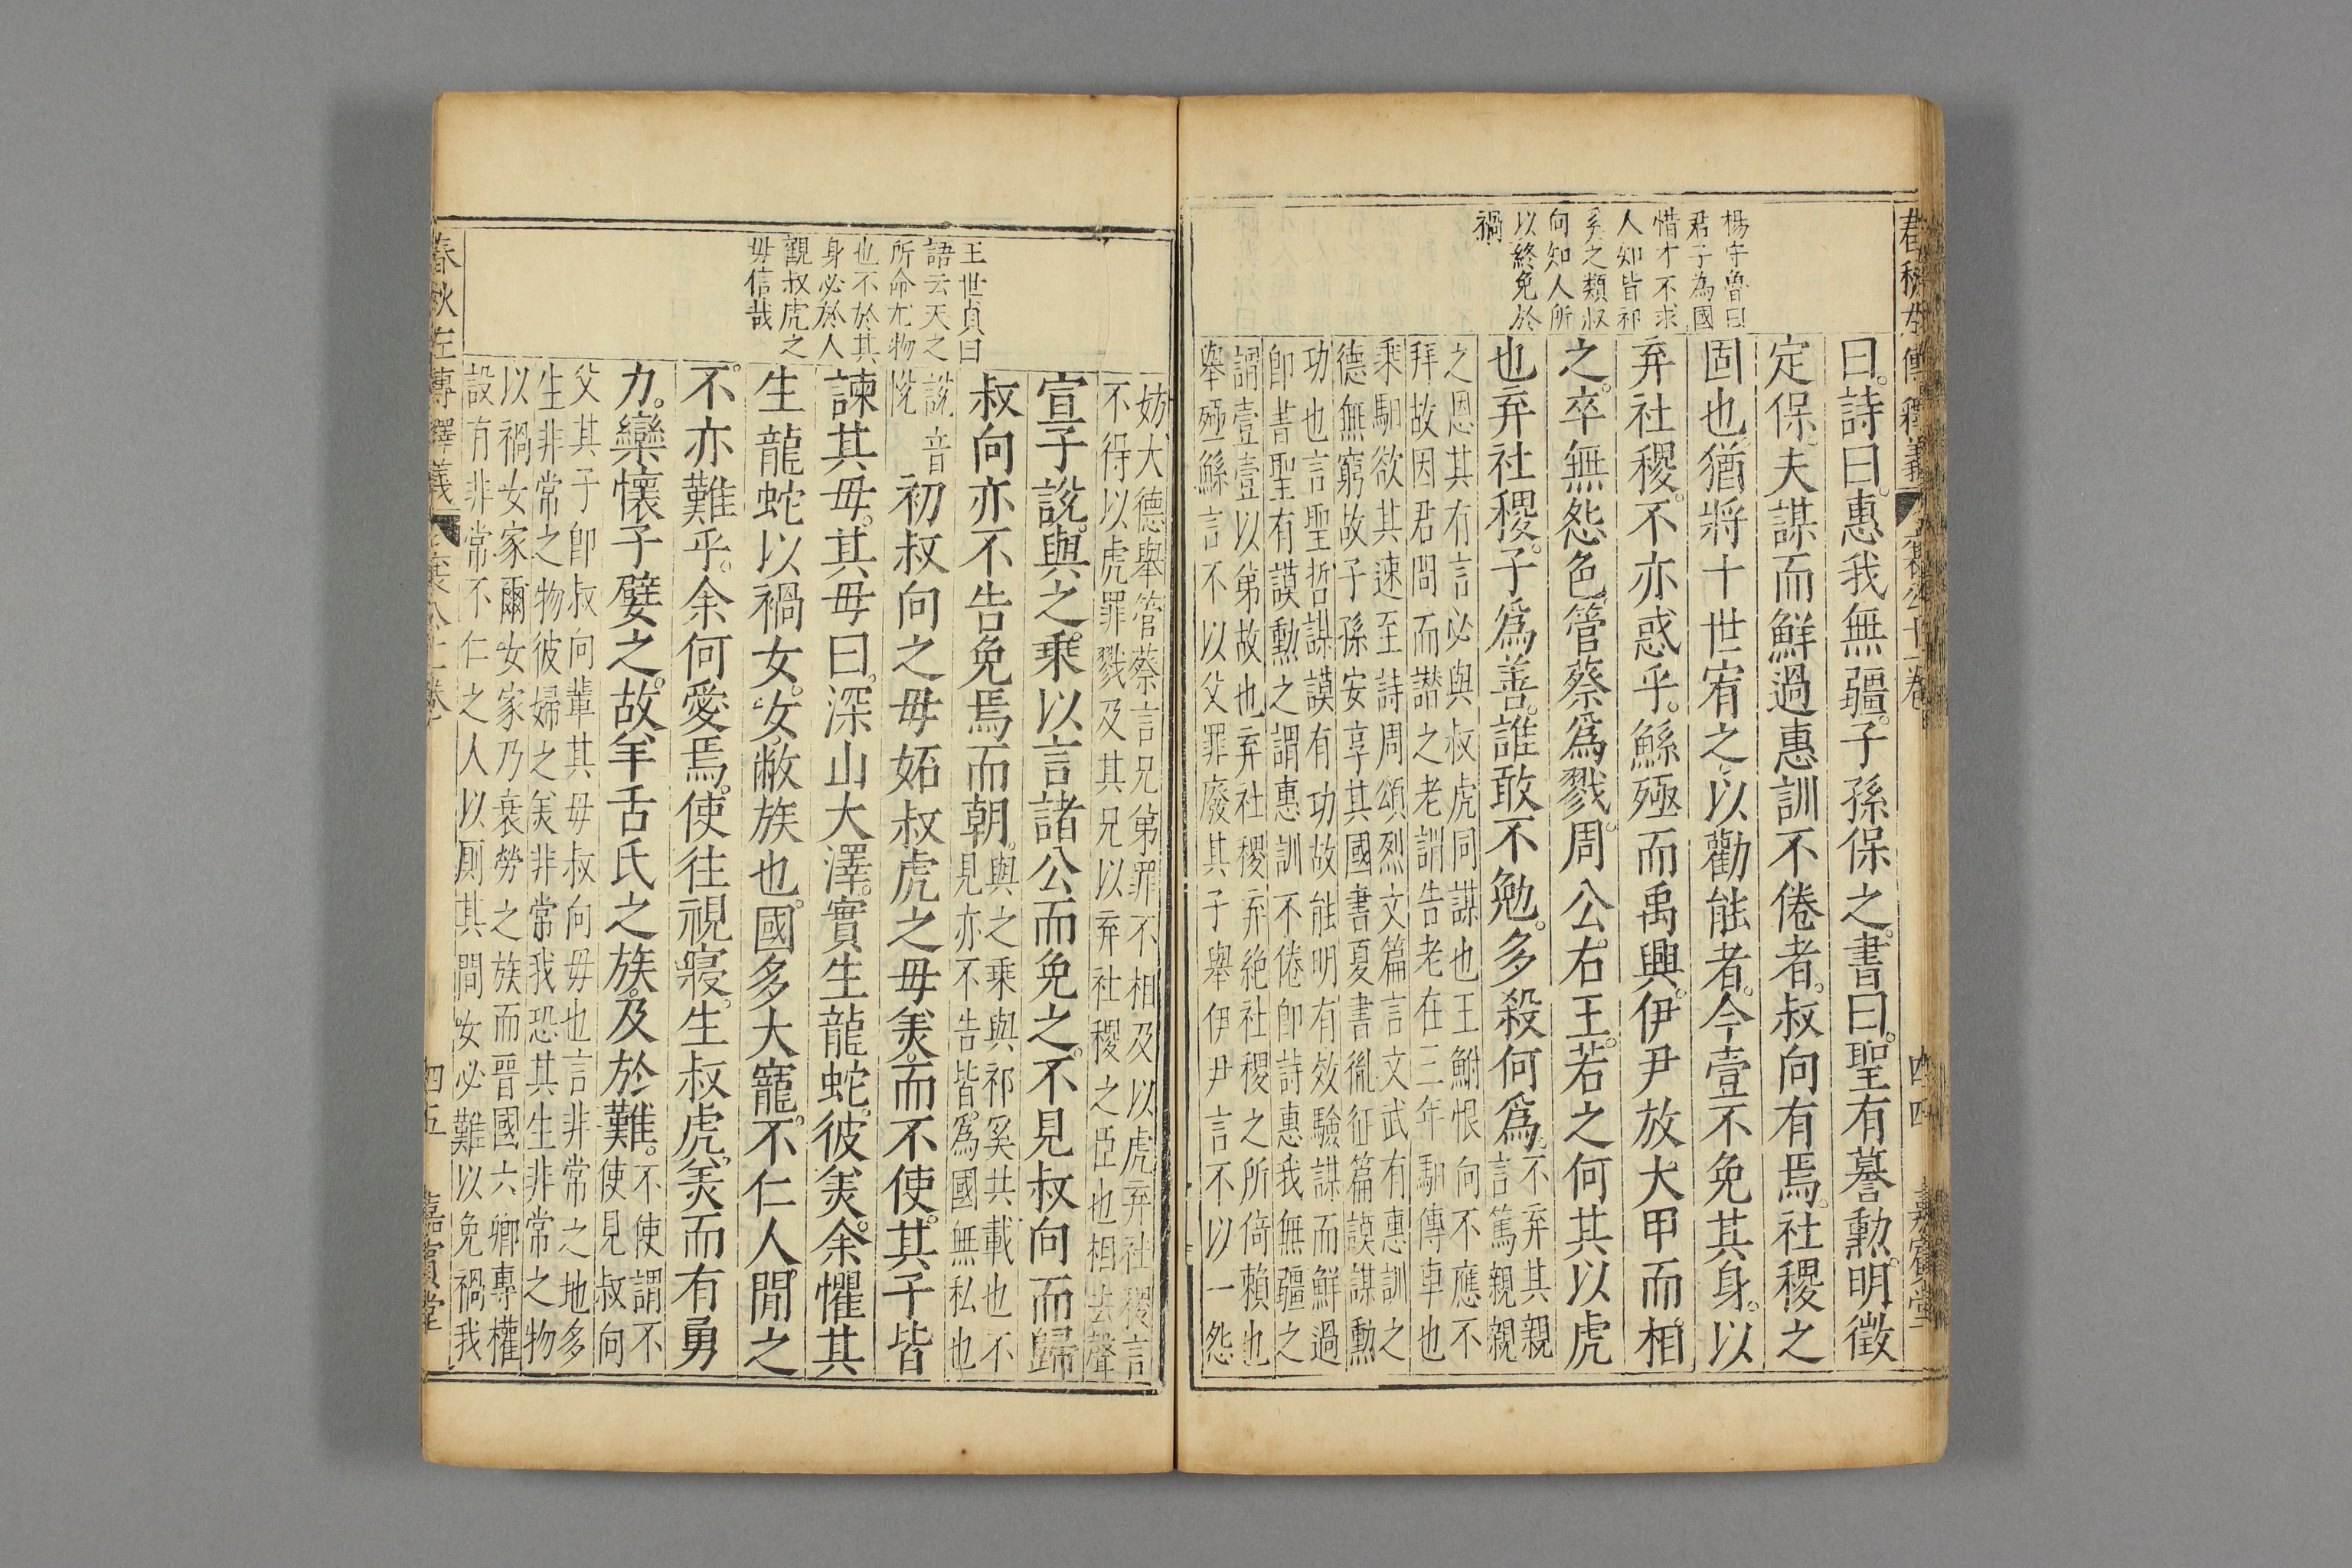 楊守魯曰
君子為國
惜才不求
人知皆祁
奚之類叔
向知人所
以終免於
禍
曰詩曰惠我無疆子孫保之書曰聖有謩勲明徵
定保夫謀而鮮過惠訓不倦者叔向有焉社稷之
固也猶將十世宥之以勸能者今壹不免其身以
弃社稷不亦惑乎鯀殛而禹興伊尹放大甲而相
之卒無怨色管蔡爲戮周公右王若之何其以虎
也弃社稷子爲善誰敢不勉多殺何爲不弃其親
言篤親親
之恩其有言必與叔虎同謀也王鮒恨向不應不
拜故因君問而譖之老訓告老在三年馹傳車也
乘馹欲其速至詩周頌烈文篇言文武有惠訓之
德無窮故子孫安享其國書夏書胤征篇謨謀勲
功也言聖哲謀謨有功故能明有效驗謀而鮮過
卽書聖有謨勲之謂惠訓不倦卽詩惠我無疆之
謂壹壹以弟故也弃社稷弃絶社稷之所倚賴也
舉殛鯀言不以父罪廢其子舉伊尹言不以一怨
四四
王世貞曰
語云天之
所命尤物
也不於其
身必於人
觀叔虎之
毋信哉
妨大德舉管蔡言兄弟罪不相及以虎弃社稷言
不得以虎罪戮及其兄以弃社稷之臣也相去聲
宣子說與之乘以言諸公而免之不見叔向而歸
叔向亦不告免焉而朝與之乘與祁奚共載也不
見亦不告皆爲國無私也
說音
悅
初叔向之毋妬叔虎之毋羙而不使其子皆
諫其毋其毋曰深山大澤實生龍蛇彼羙余懼其
生龍蛇以禍女女敝族也國多大寵不仁人閒之
不亦難乎余何愛焉使往視寢生叔虎羙而有勇
力欒懷子嬖之故羊舌氏之族及於難不使謂不
使見叔向
父其子卽叔向輩其毋叔向毋也言非常之地多
生非常之物彼婦之羙非常我恐其生非常之物
以禍女家爾女家乃衰勞之族而晋國六卿專權
設有非常不仁之人以厠其間女必難以免禍我
春秋左傳釋義
四五
嘉賓堂